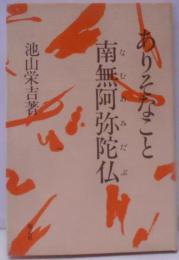 ありそなこと
南無阿弥陀仏
なむあみだぶ
池山栄吉著